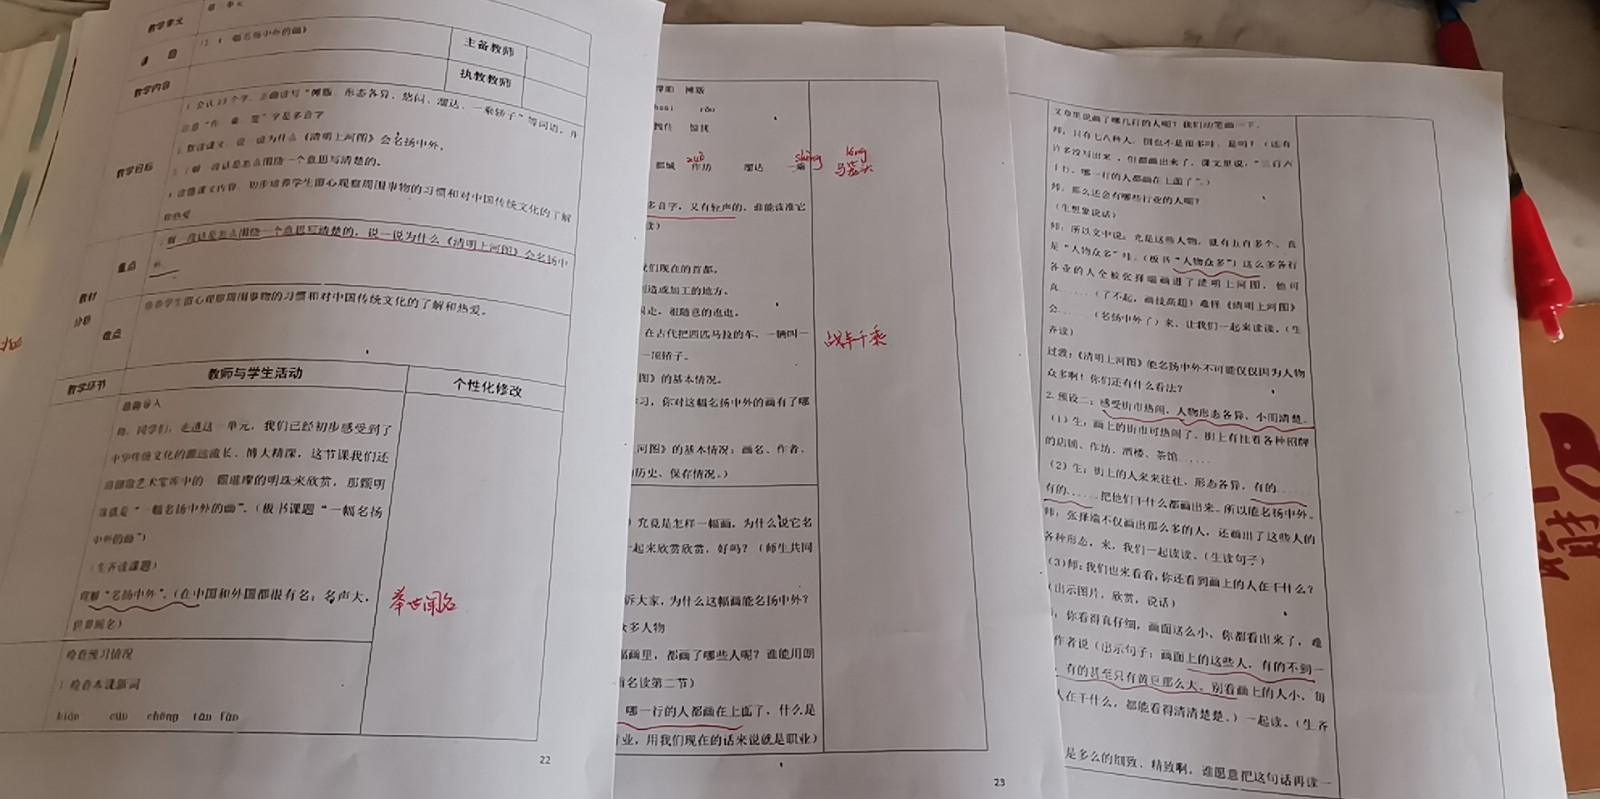 教学单元
课 题
12.《一幅名扬中外的画》
主备教师
教学内容
执教教师
教学目标
1.会认13个字,正确读写“摊贩、形态各异、悠闲、溜达、一乘轿子”等词语,并
注意“作 乘 笼”字是多音字
2.默读课文,说一说为什么《清明上河图》会名扬中外。
3.了解一段话是怎么围绕一个意思写清楚的。
4.读懂课文内容,初步培养学生留心观察周围事物的习惯和对中国传统文化的了解
和热爱
教材
分析
重点
了解一段话是怎么围绕一个意思写清楚的,说一说为什么《清明上河图》会名扬中
外。
难点
培养学生留心观察周围事物的习惯和对中国传统文化的了解和热爱。
教学环节
教师与学生活动
个性化修改
师:同学们,走进这一单元,我们已经初步感受到了
中华传统文化的源远流长、博大精深,这节课我们还
颗璀璨的明珠来欣赏,那颗明
珠就是“一幅名扬中外的画”。(板书课题“一幅名扬
中外的画”)
(生齐读课题)
理解“名扬中外”。(在中国和外国都很有名;名声大,
举世闻名)
举世闻名
检查预习情况
1.检查本课新词
chēng tān fàn
22
摊贩
rǎo
惊扰
zuō
shèng
lóng
都城 作坊 溜达 乘 马笼头
多音字,又有轻声的,谁能读准它
读)
们现在的首都。
造或加工的地方。
走,很随意的逛逛。
在古代把四匹马拉的车,一辆叫一
战车千乘
一顶轿子。
图》的基本情况。
习,你对这幅名扬中外的画有了哪
河图》的基本情况:画名、作者、
历史、保存情况。)
究竟是怎样一幅画,为什么说它名
一起来欣赏欣赏,好吗?(师生共同
诉大家,为什么这幅画能名扬中外?
众多人物
画里,都画了哪些人呢?谁能用朗
名读第二节)
哪一行的人都画在上面了,什么是
行业,用我们现在的话来说就是职业)
23
文章里说画了哪几行的人呢?我们动笔画一下。
师:只有七八种人,倒也不是很多呀,是吗?(还有
许多没写出来,但都画出来了,课文里说,“三百六
十行,哪一行的人都画在上面了”。)
师:那么还会有哪些行业的人呢?
(生想象说话)
师:所以文中说:光是这些人物,就有五百多个,真
是“人物众多”哇。(板书“人物众多”)这么多各行
各业的人全被张择端画进了清明上河图,他可
真......(了不起,画技高超)难怪《清明上河图》
会......(名扬中外了)来,让我们一起来读读。(生
齐读)
过渡:《清明上河图》能名扬中外不可能仅仅因为人物
众多啊!你们还有什么看法?
2.预设二:感受街市热闹,人物形态各异,小而清楚。
(1)生:画上的街市可热闹了,街上有挂着各种招牌
的店铺、作坊、酒楼、茶馆......
(2)生:街上的人来来往往,形态各异,有的......
有的......把他们干什么都画出来。所以能名扬中外。
师:张择端不仅画出那么多的人,还画出了这些人的
各种形态,来,我们一起读读。(生读句子)
(3)师:我们也来看看,你还看到画上的人在干什么?
(出示图片,欣赏,说话)
,你看得真仔细,画面这么小,你都看出来了,难
作者说(出示句子:画面上的这些人,有的不到一
,有的甚至只有黄豆那么大。别看画上的人小,每
人在干什么,都能看得清清楚楚。)一起读。(生齐
是多么的细致、精致啊,谁愿意把这句话再读一